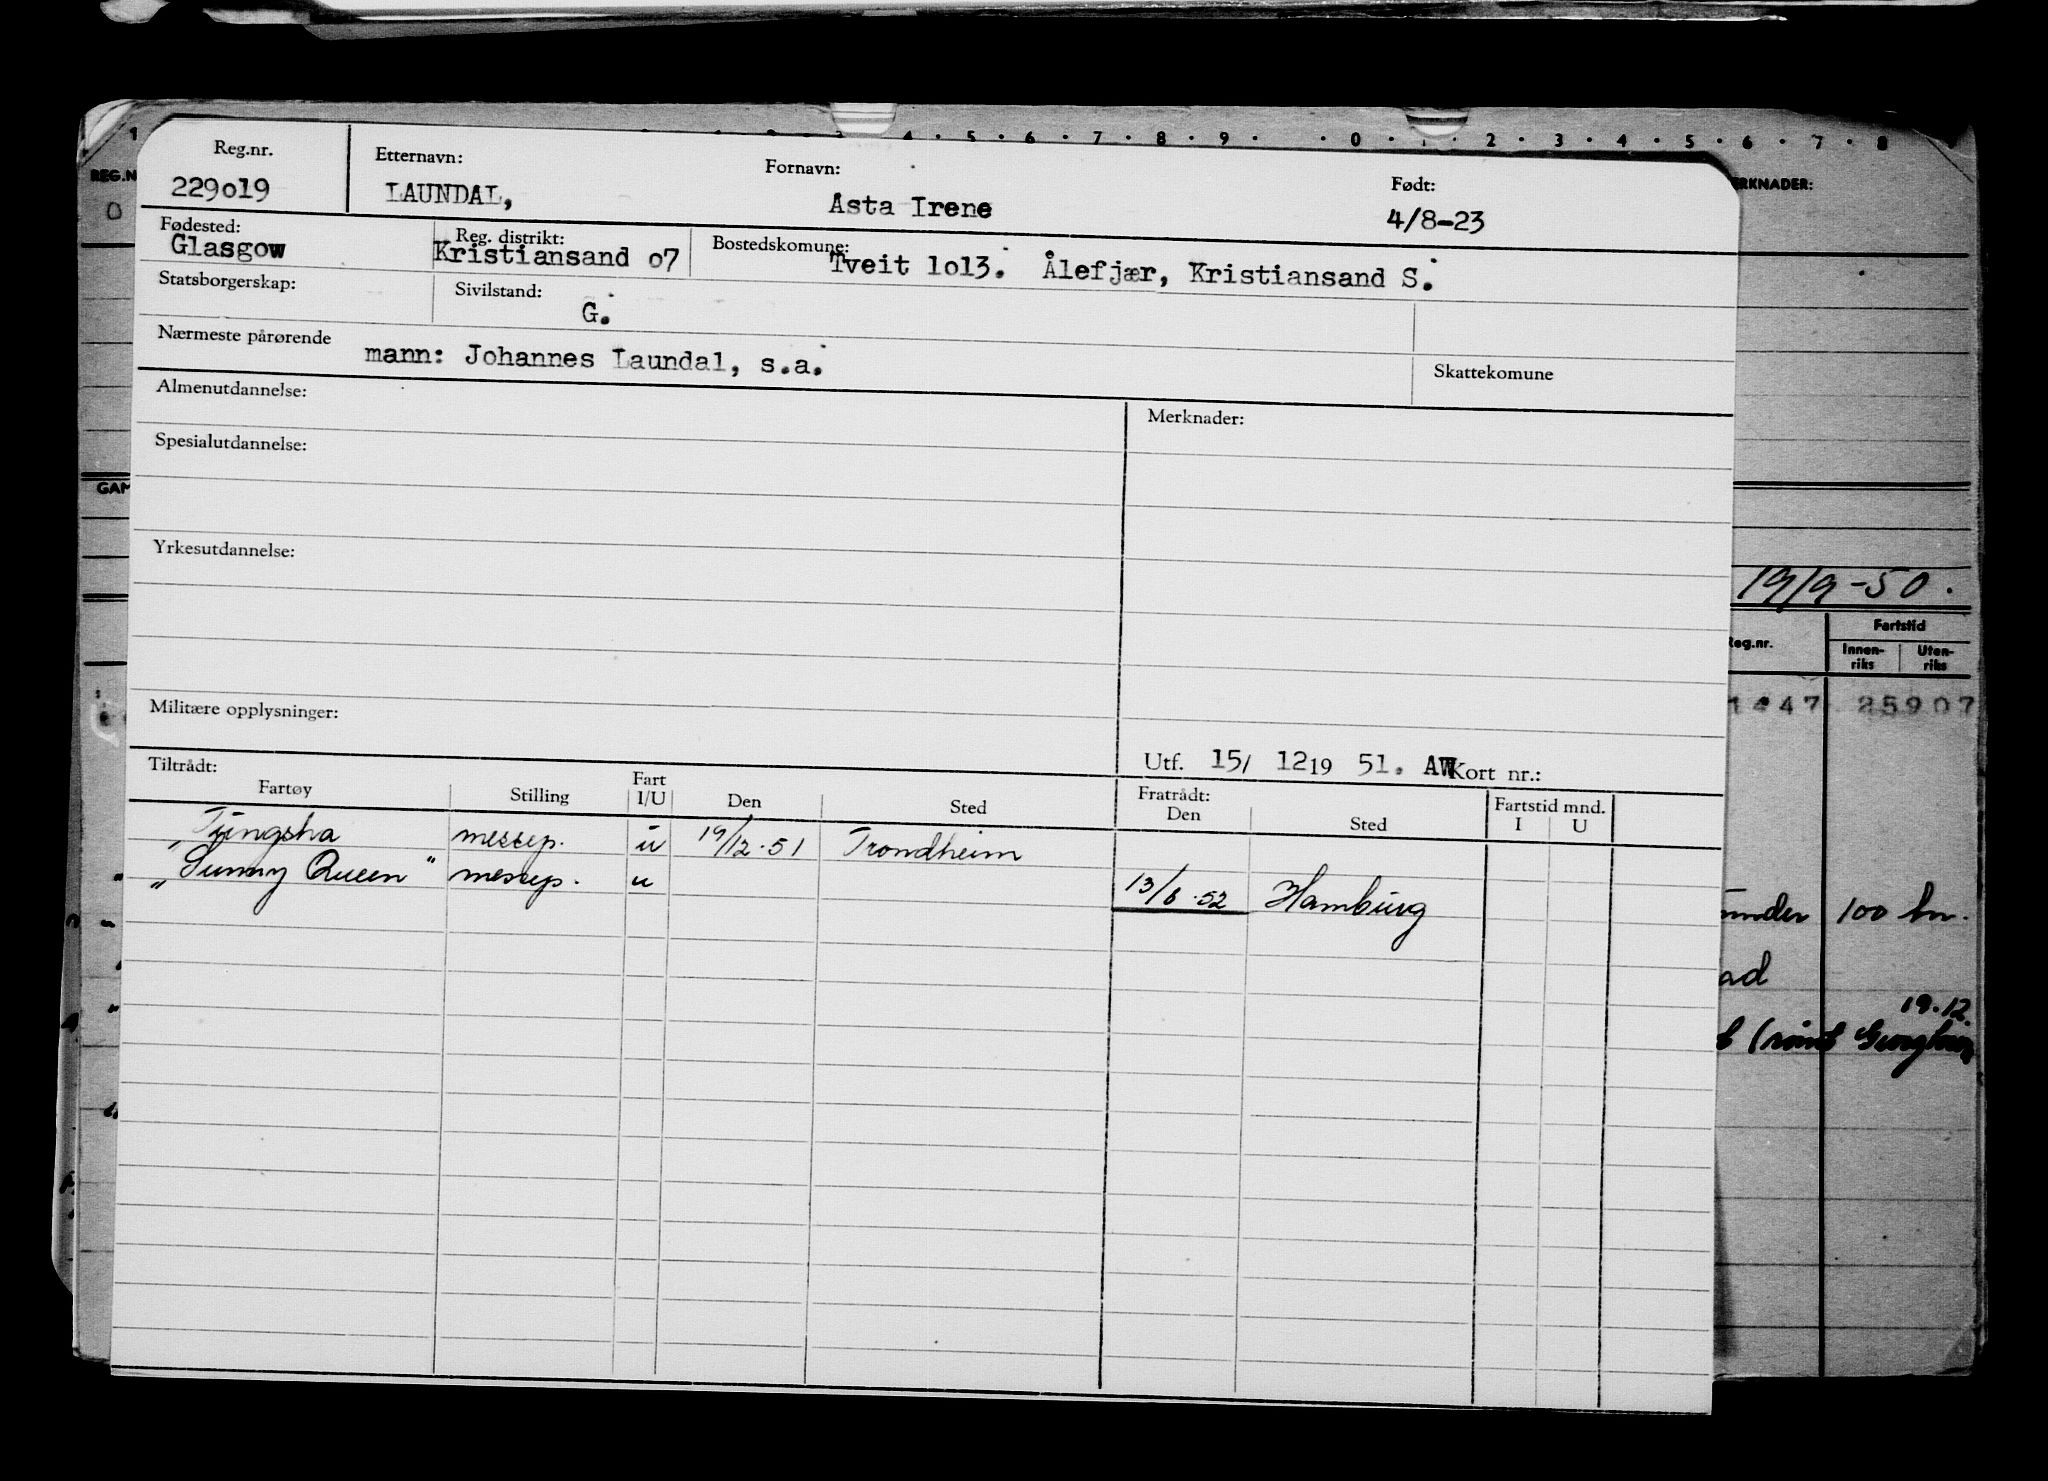 1 3 4 · 5 · 6 · 7 · 8 · 9 · · 0 · 1 · 2 · 3 · 4 · 5 · 6 · 7 · 8
Reg.nr. Etternavn: Fornavn: Født:
229o19 LAUNDAL, Asta Irene 4/8-23
REG.N ERKNADER:
0
Fødested: Reg. distrikt: Bostedskomune:
Glasgow Kristiansand o7 Tveit 1o13. Ålefjær, Kristiansand S.
Statsborgerskap: Sivilstand:
G.
Nærmeste pårørende
mann: Johannes Laundal, s.a.
Skattekomune
Almenutdannelse: Merknader:
Spesialutdannelse:
GAM
Yrkesutdannelse:
19/9-50.
Reg.nr. Fartstid
Innen-riks Uten-riks
1447 25907
Militære opplysninger:
Utf. 15/ 1219 51. AW Kort nr.:
Tiltrådt: Fratrådt: Fartstid mnd.
Fartøy Stilling Fart I/U Den Sted Den Sted I U
„Tjingsha messep. u 19/12.51 Trondheim
„Sunny Queen" messep. u 13/6.52 Hamburg
100 kr.
ad
19.12.